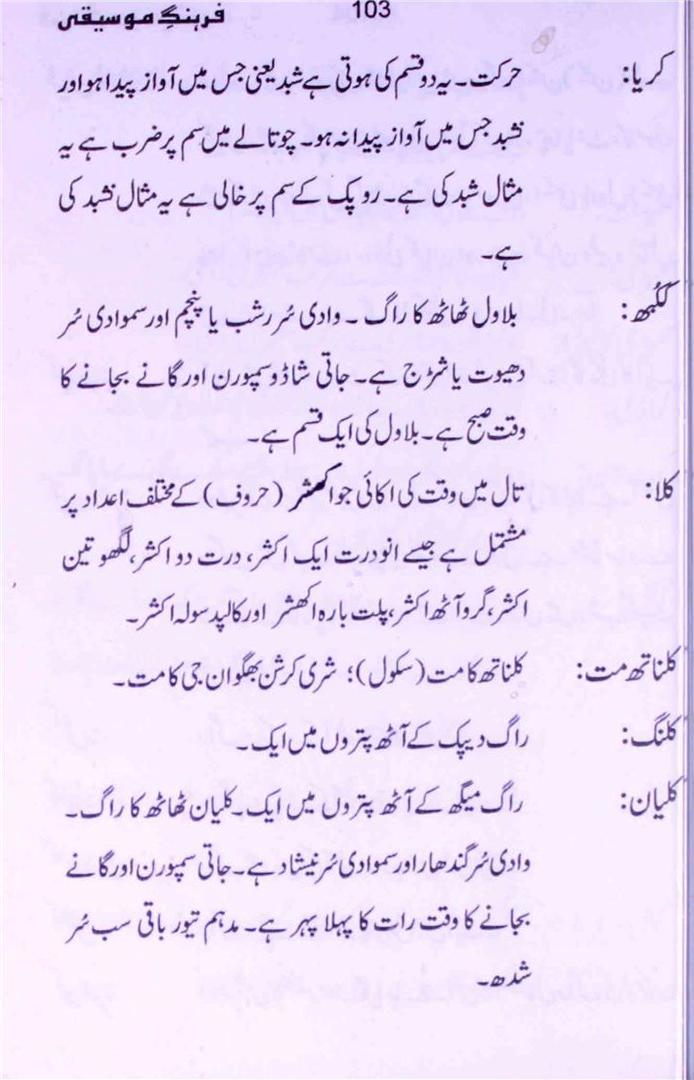 103 فرہنگِ موسیقی
کریا: حرکت۔ یہ دو قسم کی ہوتی ہے شبد یعنی جس میں آواز پیدا ہو اور
نشبد جس میں آواز پیدا نہ ہو۔ چوتالے میں سم پر ضرب ہے یہ
مثال شبد کی ہے۔ روپک کے سم پر خالی ہے یہ مثال نشبد کی
ہے۔
ککبھ: بلاول ٹھاٹھ کا راگ۔ وادی سُر رشب یا پنچم اور سموادی سُر
دھیوت یا شڑج ہے۔ جاتی شاڈو سمپورن اور گانے بجانے کا
وقت صبح ہے۔ بلاول کی ایک قسم ہے۔
کلا: تال میں وقت کی اکائی جو اکھشر (حروف) کے مختلف اعداد پر
مشتمل ہے جیسے انودرت ایک اکشر، درت دو اکشر، لگھو تین
اکشر، گرو آٹھ اکشر، پلت بارہ اکھشر اور کالپد سولہ اکشر۔
کلناتھ مت: کلناتھ کا مت (سکول)؛ شری کرشن بھگوان جی کا مت۔
کلنگ: راگ دیپک کے آٹھ پتروں میں ایک۔
کلیان: راگ میگھ کے آٹھ پتروں میں ایک۔ کلیان ٹھاٹھ کا راگ۔
وادی سُر گندھار اور سموادی سُر نیشاد ہے۔ جاتی سمپورن اور گانے
بجانے کا وقت رات کا پہلا پہر ہے۔ مدہم تیور باقی سب سُر
شدھ۔